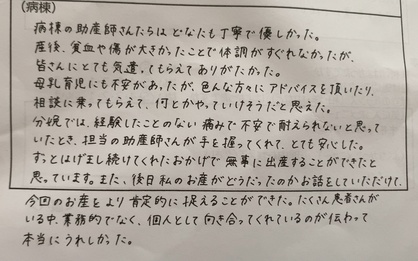 (病棟)
病棟の助産師さんたちはどなたも丁寧で優しかった。
産後、貧血や傷が大きかったことで体調がすぐれなかったが、
皆さんにとても気遣ってもらえてありがたかった。
母乳育児にも不安があったが、色んな方々にアドバイスを頂いたり、
相談に乗ってもらえて、何とかやっていけそうだと思えた。
分娩では、経験したことのない痛みで不安で耐えられないと思って
いたとき、担当の助産師さんが手を握ってくれて、とても安心した。
ずっとはげまし続けてくれたおかげで無事に出産することができたと
思っています。また、後日私のお産がどうだったのかお話をしていただけて、
今回のお産をより肯定的に捉えることができた。たくさん患者さんが
いる中、業務的でなく、個人として向き合ってくれているのが伝わって
本当にうれしかった。